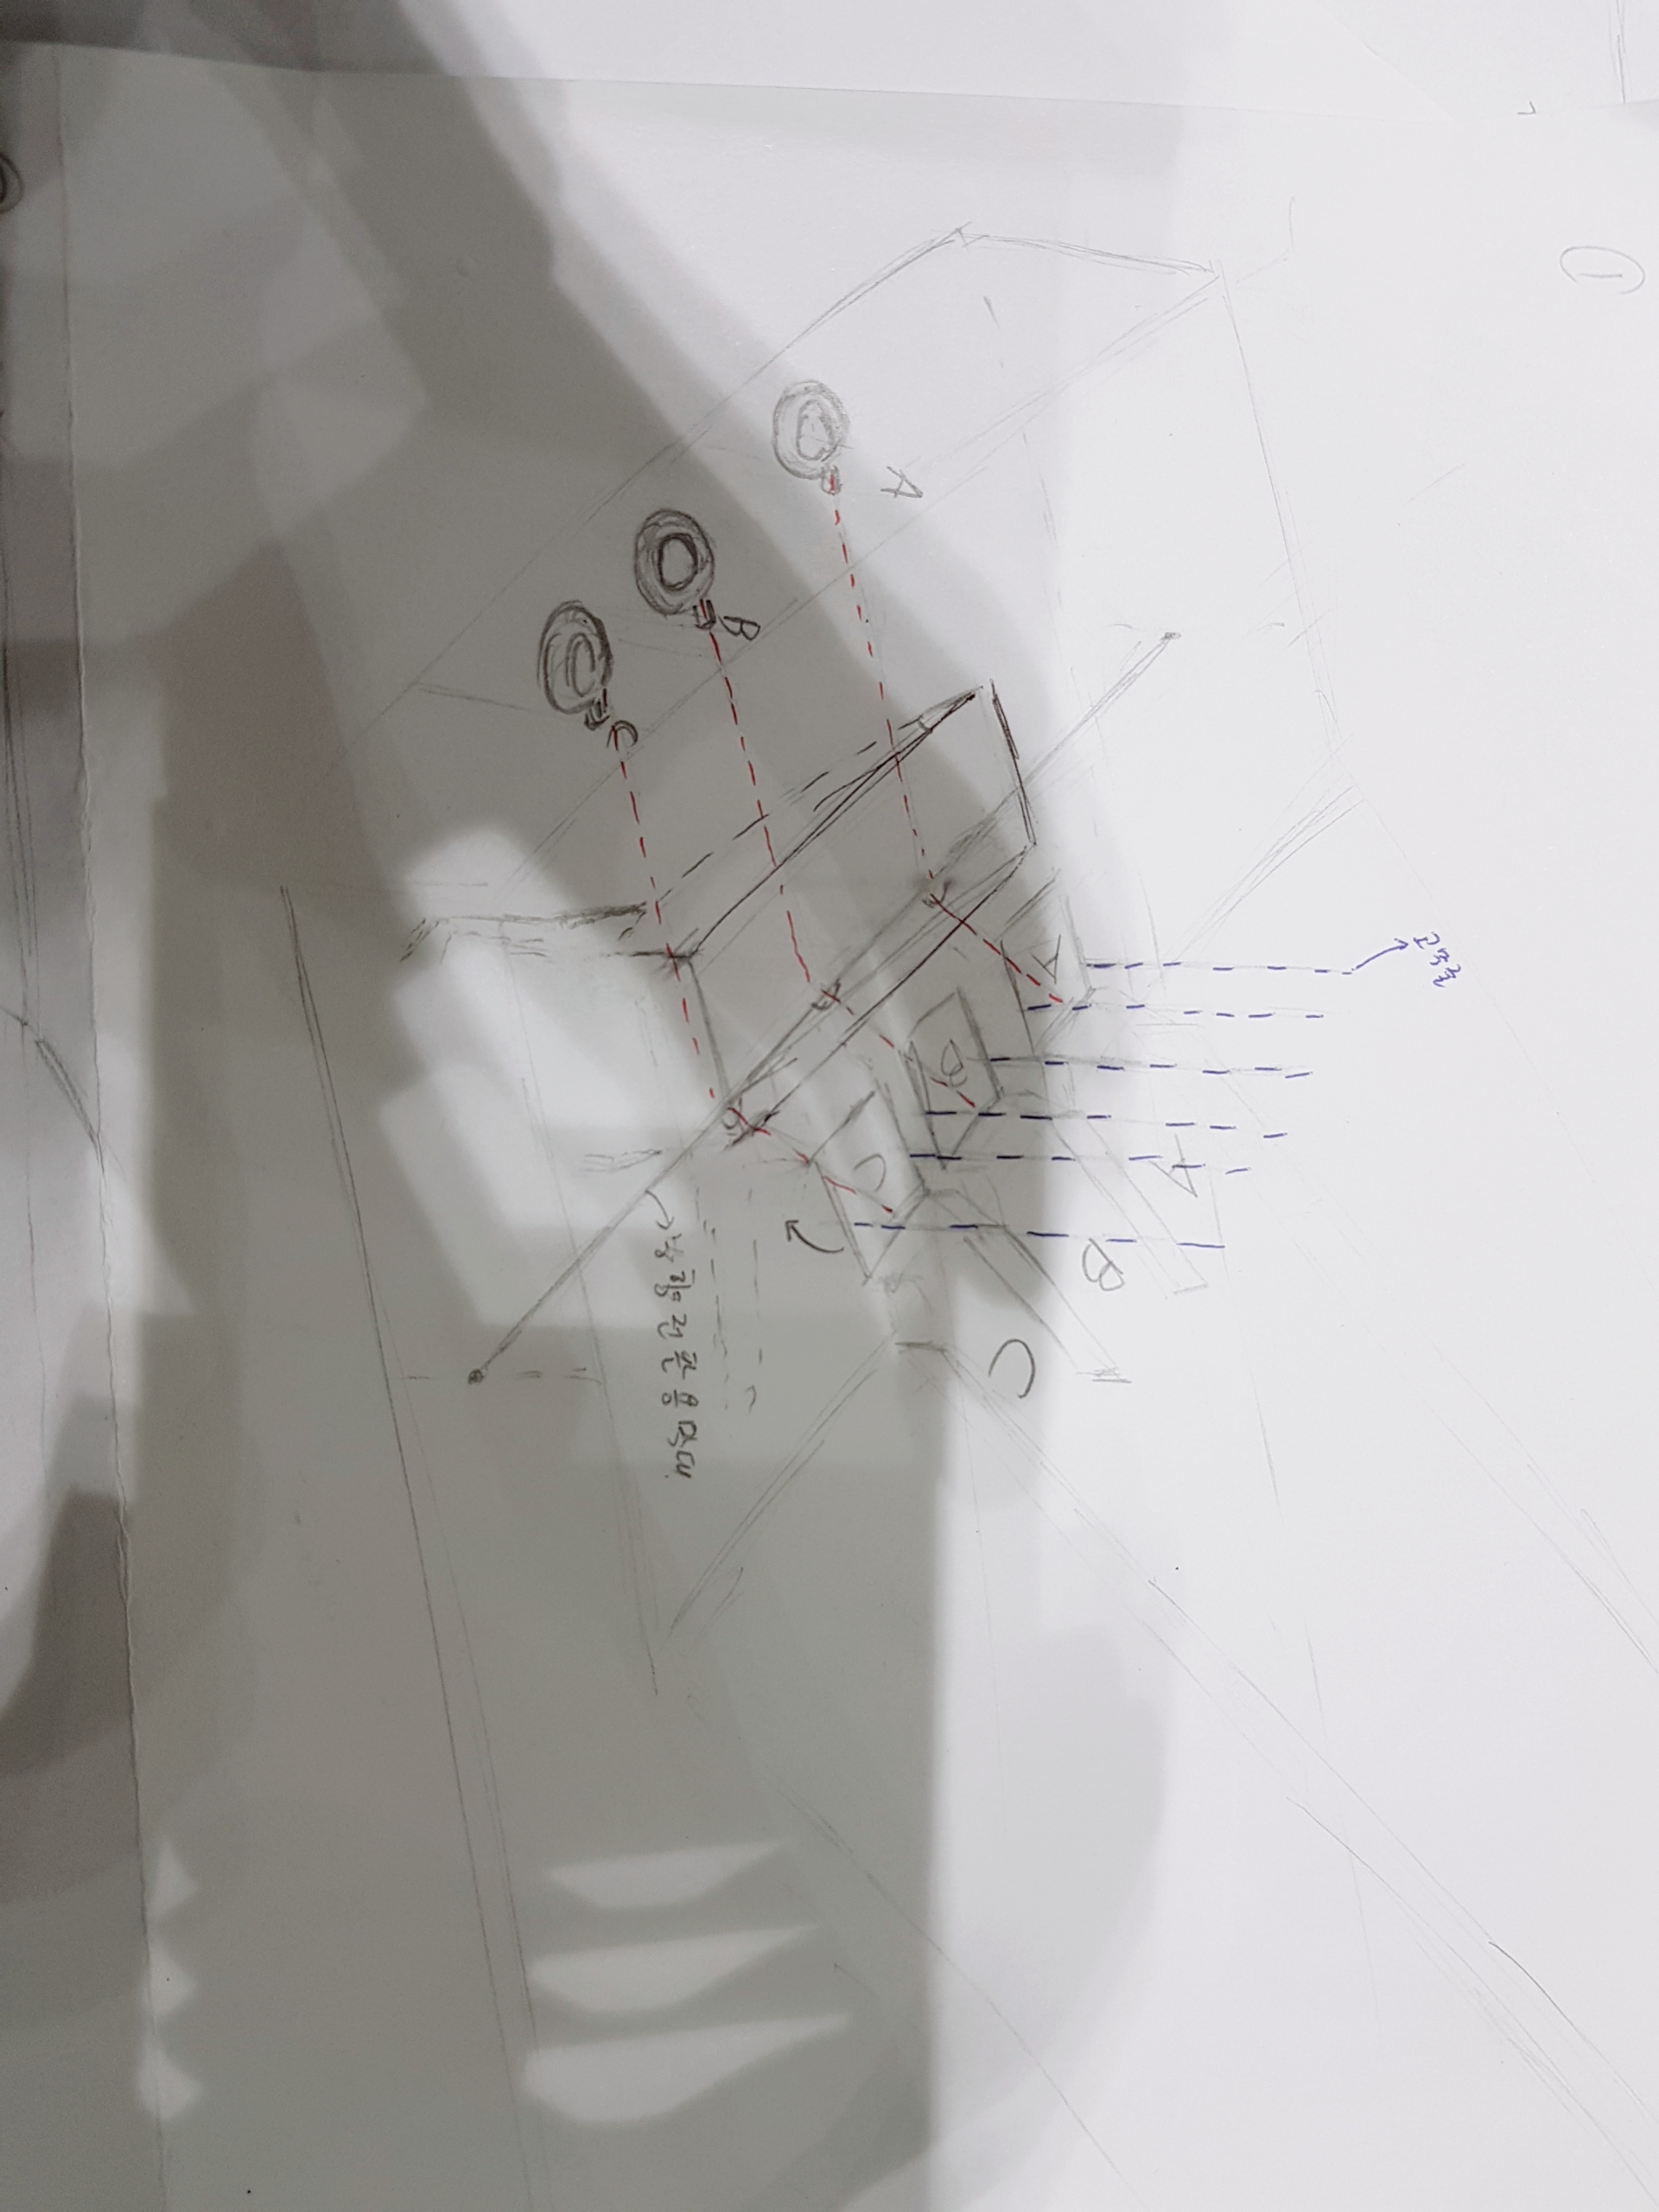 ①
고무줄
A
B
C
A
B
C
A
B
C
방향전환용 막대